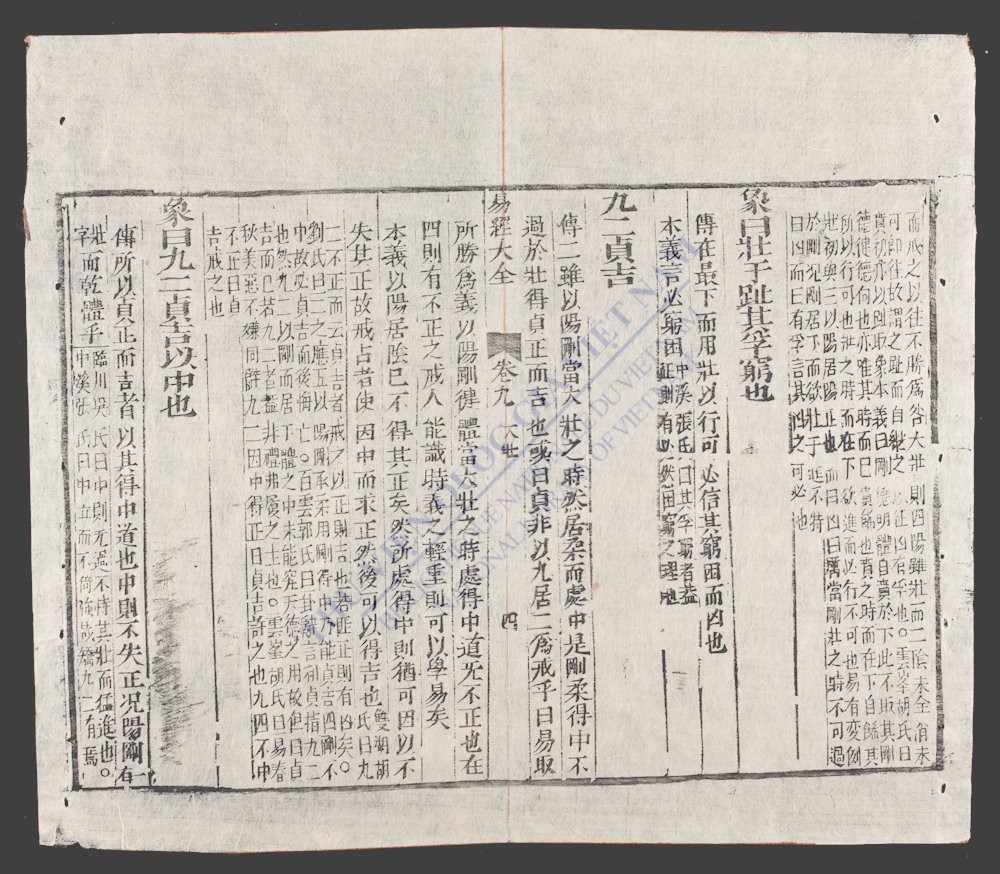 而戒之以往不勝為咎大壯則四陽雖壯而二陰未全消未
可即往故謂之趾而自 之 征凶有孚也。雲峯胡氏曰
賁初亦以趾取象本義曰剛德明體自賁於下此不取其剛
德徒德何也亦唯其時而已賁飾也賁之時而在下自飾其
所以行可也壯之時而在下欲進而必行不可也易有變例
壯初與三以陽居陽正也而曰凶曰厲當剛壯之時不可過
於剛况剛居下而欲壯于進不特
曰凶而曰有孚言其凶之可必也
象曰壯于趾其孚窮也
傳在最下而用壯以行可必信其窮困而凶也
本義言必窮困中溪張氏曰其孚窮者蓋
正剛有必然困窮之理也
九二貞吉
傳二雖以陽剛當大壯之時然居柔而處中是剛柔得中不
過於壯得貞正而吉也或曰貞非以九居二為戒乎曰易取
易經大全 卷九 大壯 四
所勝為義以陽剛健體當大壯之時處得中道无不正也在
四則有不正之戒人能識時義之輕重則可以學易矣
本義以陽居陰已不得其正矣然所處得中則猶可因以不
失其正故戒占者使因中而求正然後可以得吉也雙湖胡
氏曰九
二不正而云貞吉者戒之以正則吉也若匪正則有凶矣。
劉氏曰二之應五以陽剛承柔用剛得中乃能貞吉四剛不
中故必貞吉而後悔亡。白雲郭氏曰卦辭言利貞指九二
也然九二以剛而居下體之中未能充天德之用故但曰貞
吉而已若九二者蓋非禮弗履之士也。雲峯胡氏曰易春
秋美惡不嫌同辭九二因中得正曰貞吉許之也九四不中
不正曰貞
吉戒之也
象曰九二貞吉以中也
傳所以貞正而吉者以其得中道也中則不失正况陽剛有
壯而乾體乎臨川吳氏曰中則无過不恃其壯而猛進也。
中溪張氏曰中立而不倚強哉矯九二有焉
THƯ VIỆN QUỐC GIA VIỆT NAM
BIBLIOTHÈQUE NATIONALE DU VIETNAM
NATIONAL LIBRARY OF VIETNAM